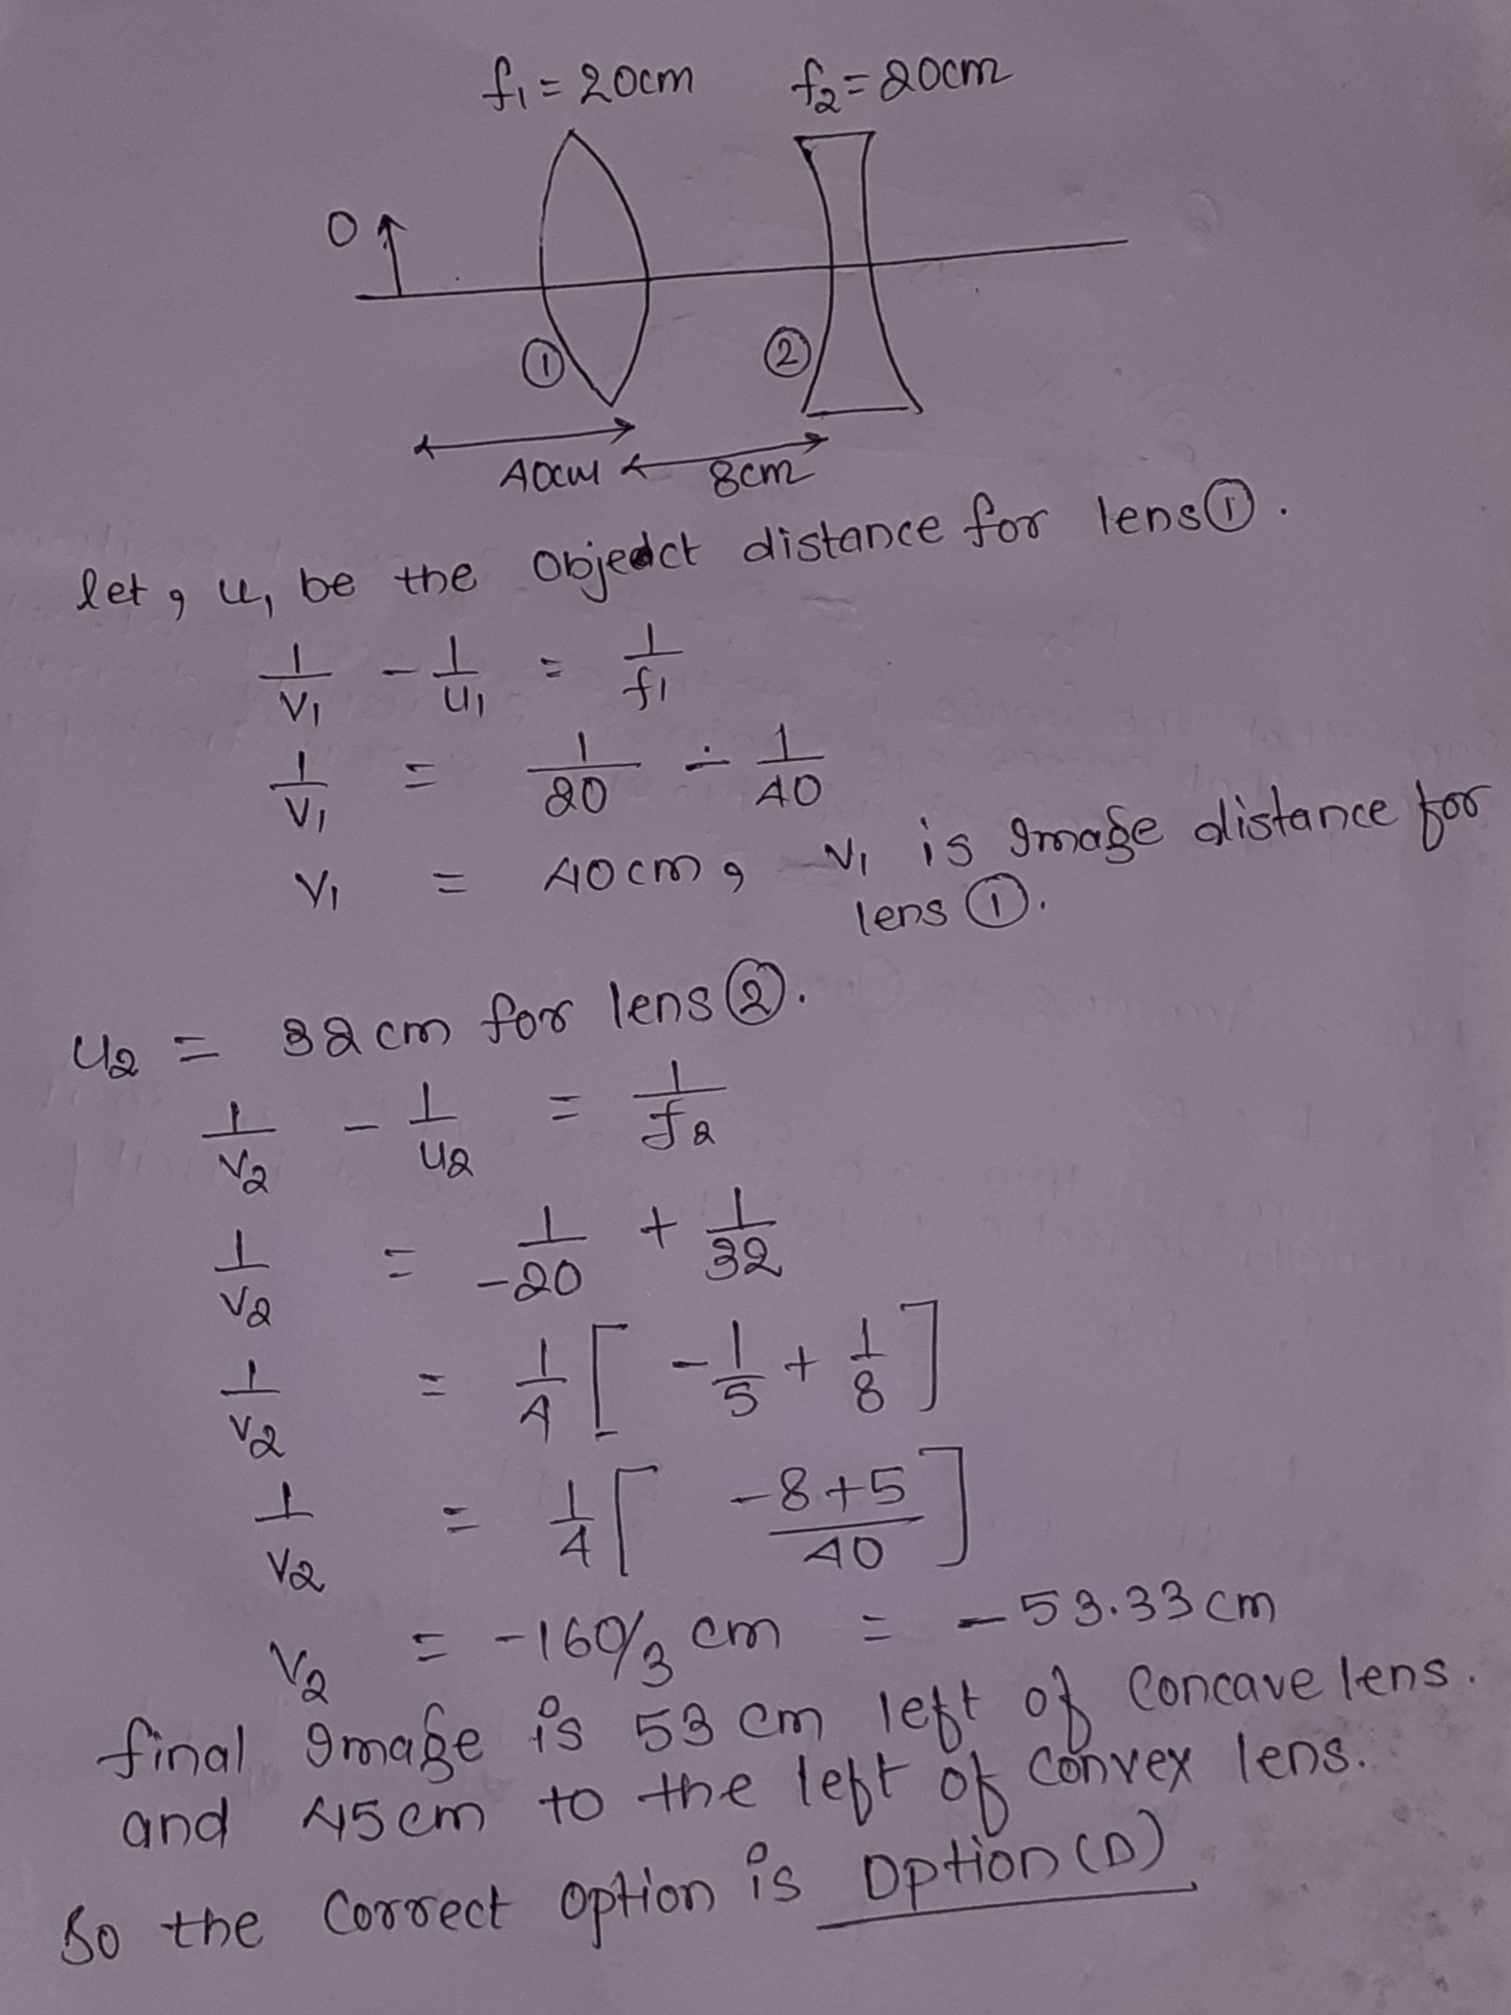 f₁ = 20cm f₂ = 20cm
O
① ②
40cm 8cm
let, u₁ be the Objedct distance for lens①.
1/V₁ - 1/u₁ = 1/f₁
1/V₁ = 1/20 - 1/40
V₁ = 40cm, V₁ is Image distance for
lens ①.
u₂ = 32 cm for lens②.
1/V₂ - 1/u₂ = 1/f₂
1/V₂ = 1/-20 + 1/32
1/V₂ = 1/4 [ -1/5 + 1/8 ]
1/V₂ = 1/4 [ -8+5/40 ]
V₂ = -160/3 cm = -53.33 cm
final Image is 53 cm left of Concave lens.
and 45 cm to the left of Convex lens.
So the Correct option is Option (D)